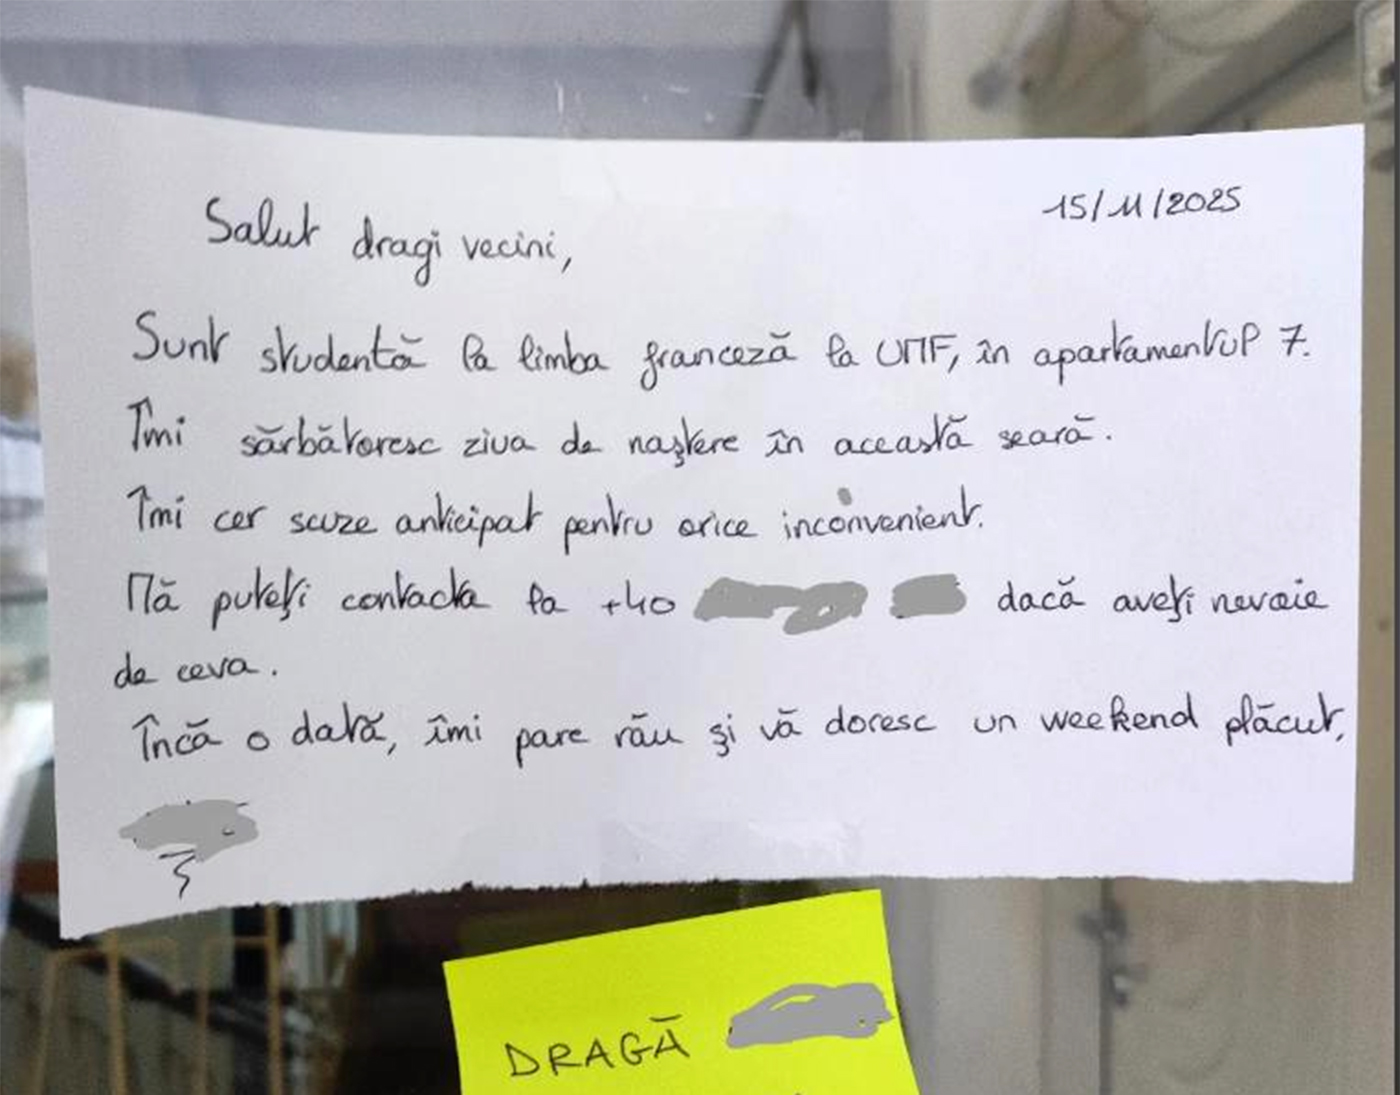 15/11/2025
Salut dragi vecini,
Sunt studentă la limba franceză la UMF, în apartamentul 7.
Îmi sărbătoresc ziua de naştere în această seară.
Îmi cer scuze anticipat pentru orice inconvenient.
Mă puteţi contacta la +40 dacă aveţi nevoie
de ceva.
Încă o dată, îmi pare rău şi vă doresc un weekend plăcut,
DRAGĂ